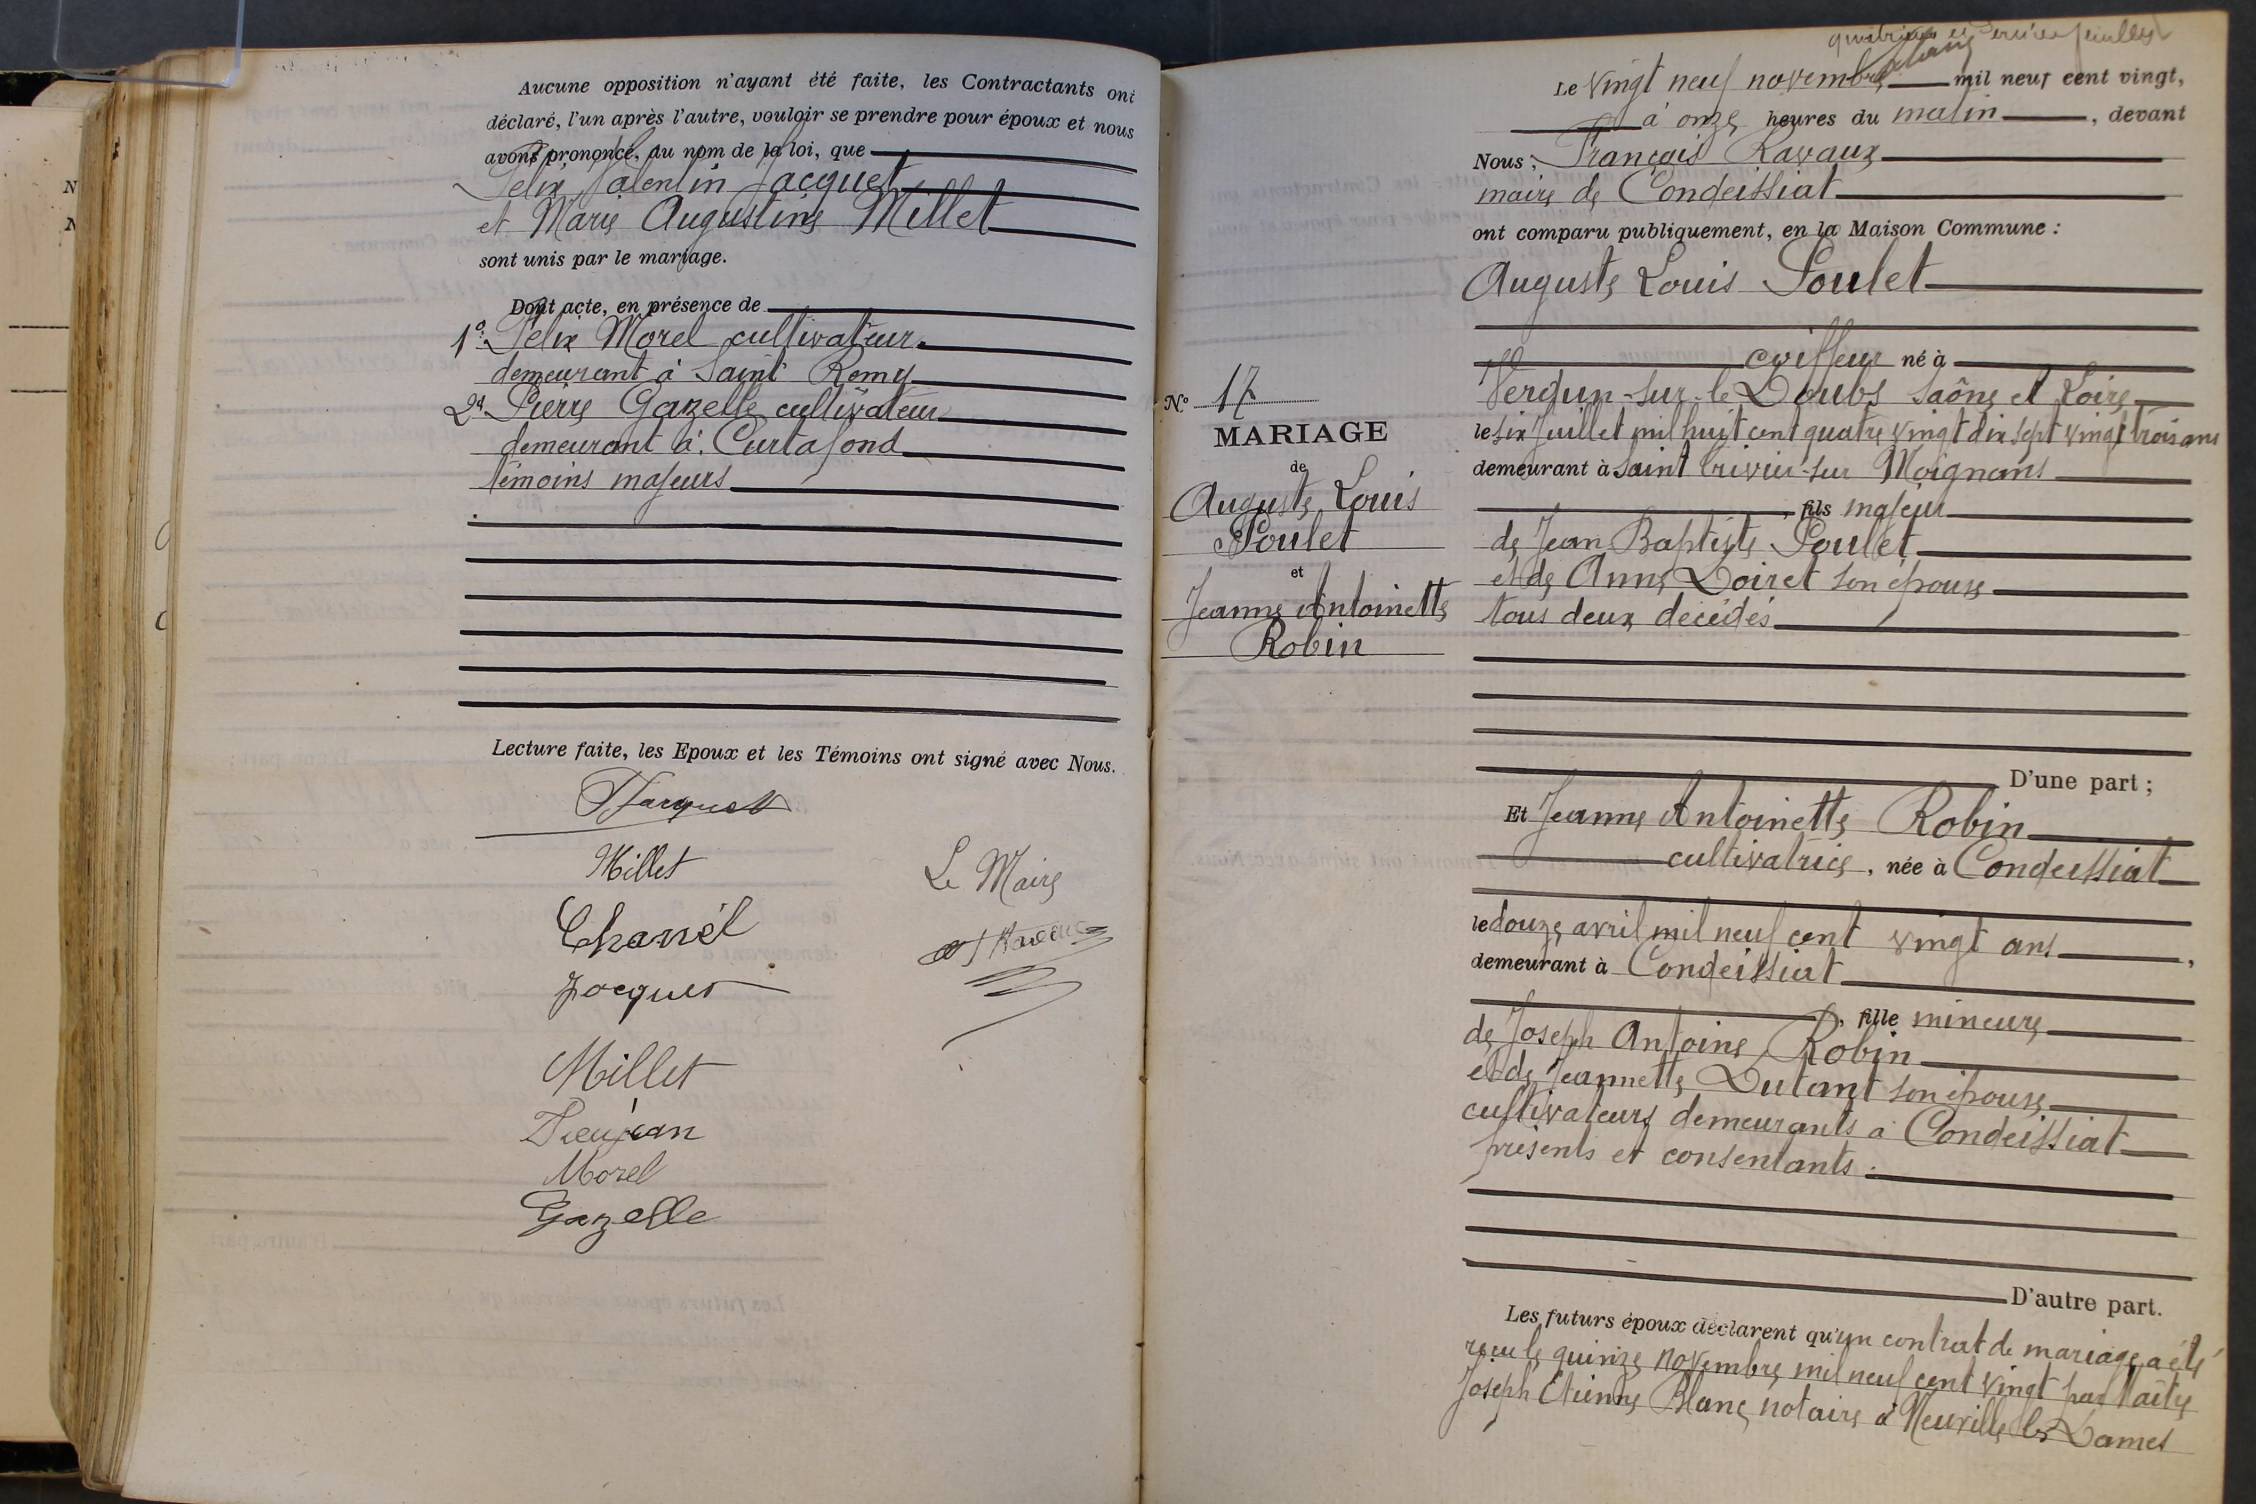 Aucune opposition n'ayant été faite, les Contractants ont
déclaré, l'un après l'autre, vouloir se prendre pour époux et nous
avons prononcé, au nom de la loi, que
Félix Valentin Jacquet
et Marie Augustine Millet
sont unis par le mariage.
Dont acte, en présence de
1º Félix Morel cultivateur
demeurant à Saint Remy
2º Pierre Gazelle cultivateur
demeurant à Curtafond
témoins majeurs
Lecture faite, les Epoux et les Témoins ont signé avec Nous.
Jacquet
Millet
Le Maire
Chanel
Ravaux
Jacquet
Millet
Morel
Gazelle
feuillet
Le vingt neuf novembre mil neuf cent vingt,
à onze heures du matin, devant
Nous, François Ravaux
maire de Condeissiat
ont comparu publiquement, en la Maison Commune :
Auguste Louis Poulet
coiffeur né à
Verdun-sur-le Doubs Saône et Loire
le six Juillet mil huit cent quatre vingt dix sept vingt trois ans
demeurant à Saint Trivier-sur Moignans
, fils majeur
de Jean Baptiste Poulet
et de Anne Loiret son épouse
tous deux décédés
D'une part ;
Nº 17
MARIAGE
de
Auguste Louis
Poulet
et
Jeanne Antoinette
Robin
Et Jeanne Antoinette Robin
cultivatrice, née à Condeissiat
le douze avril mil neuf cent vingt ans,
demeurant à Condeissiat
, fille mineure
de Joseph Antoine Robin
et de Jeannette Dutant son épouse
cultivateurs demeurants à Condeissiat
présents et consentants.
D'autre part.
Les futurs époux déclarent qu'un contrat de mariage a été
reçu le quinze novembre mil neuf cent vingt par Maître
Joseph Etienne Blanc notaire à Neuville les Dames